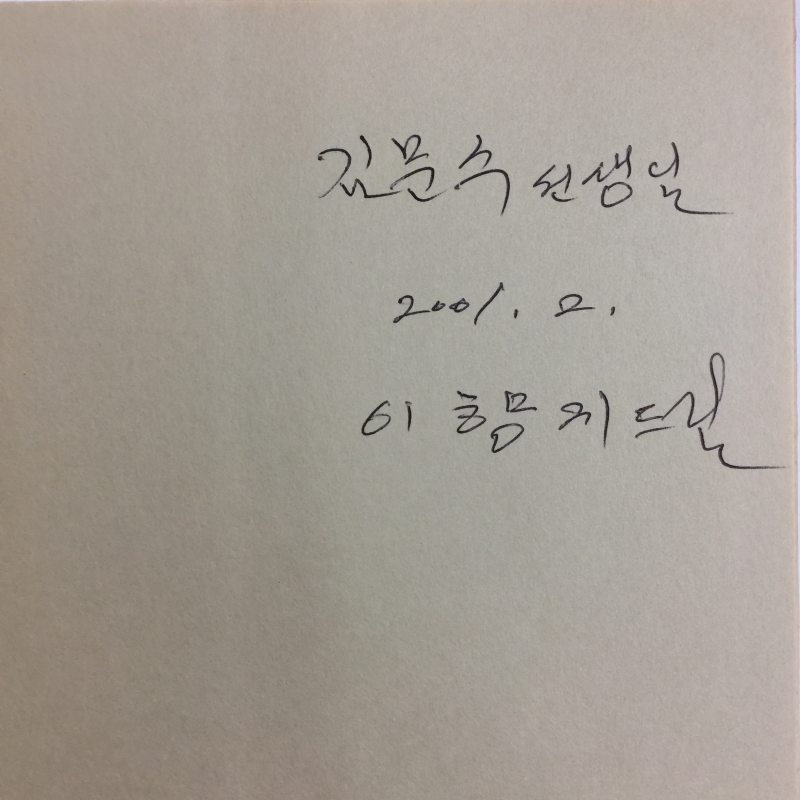 김문수 선생님
2001. 2.
이 향지 드림